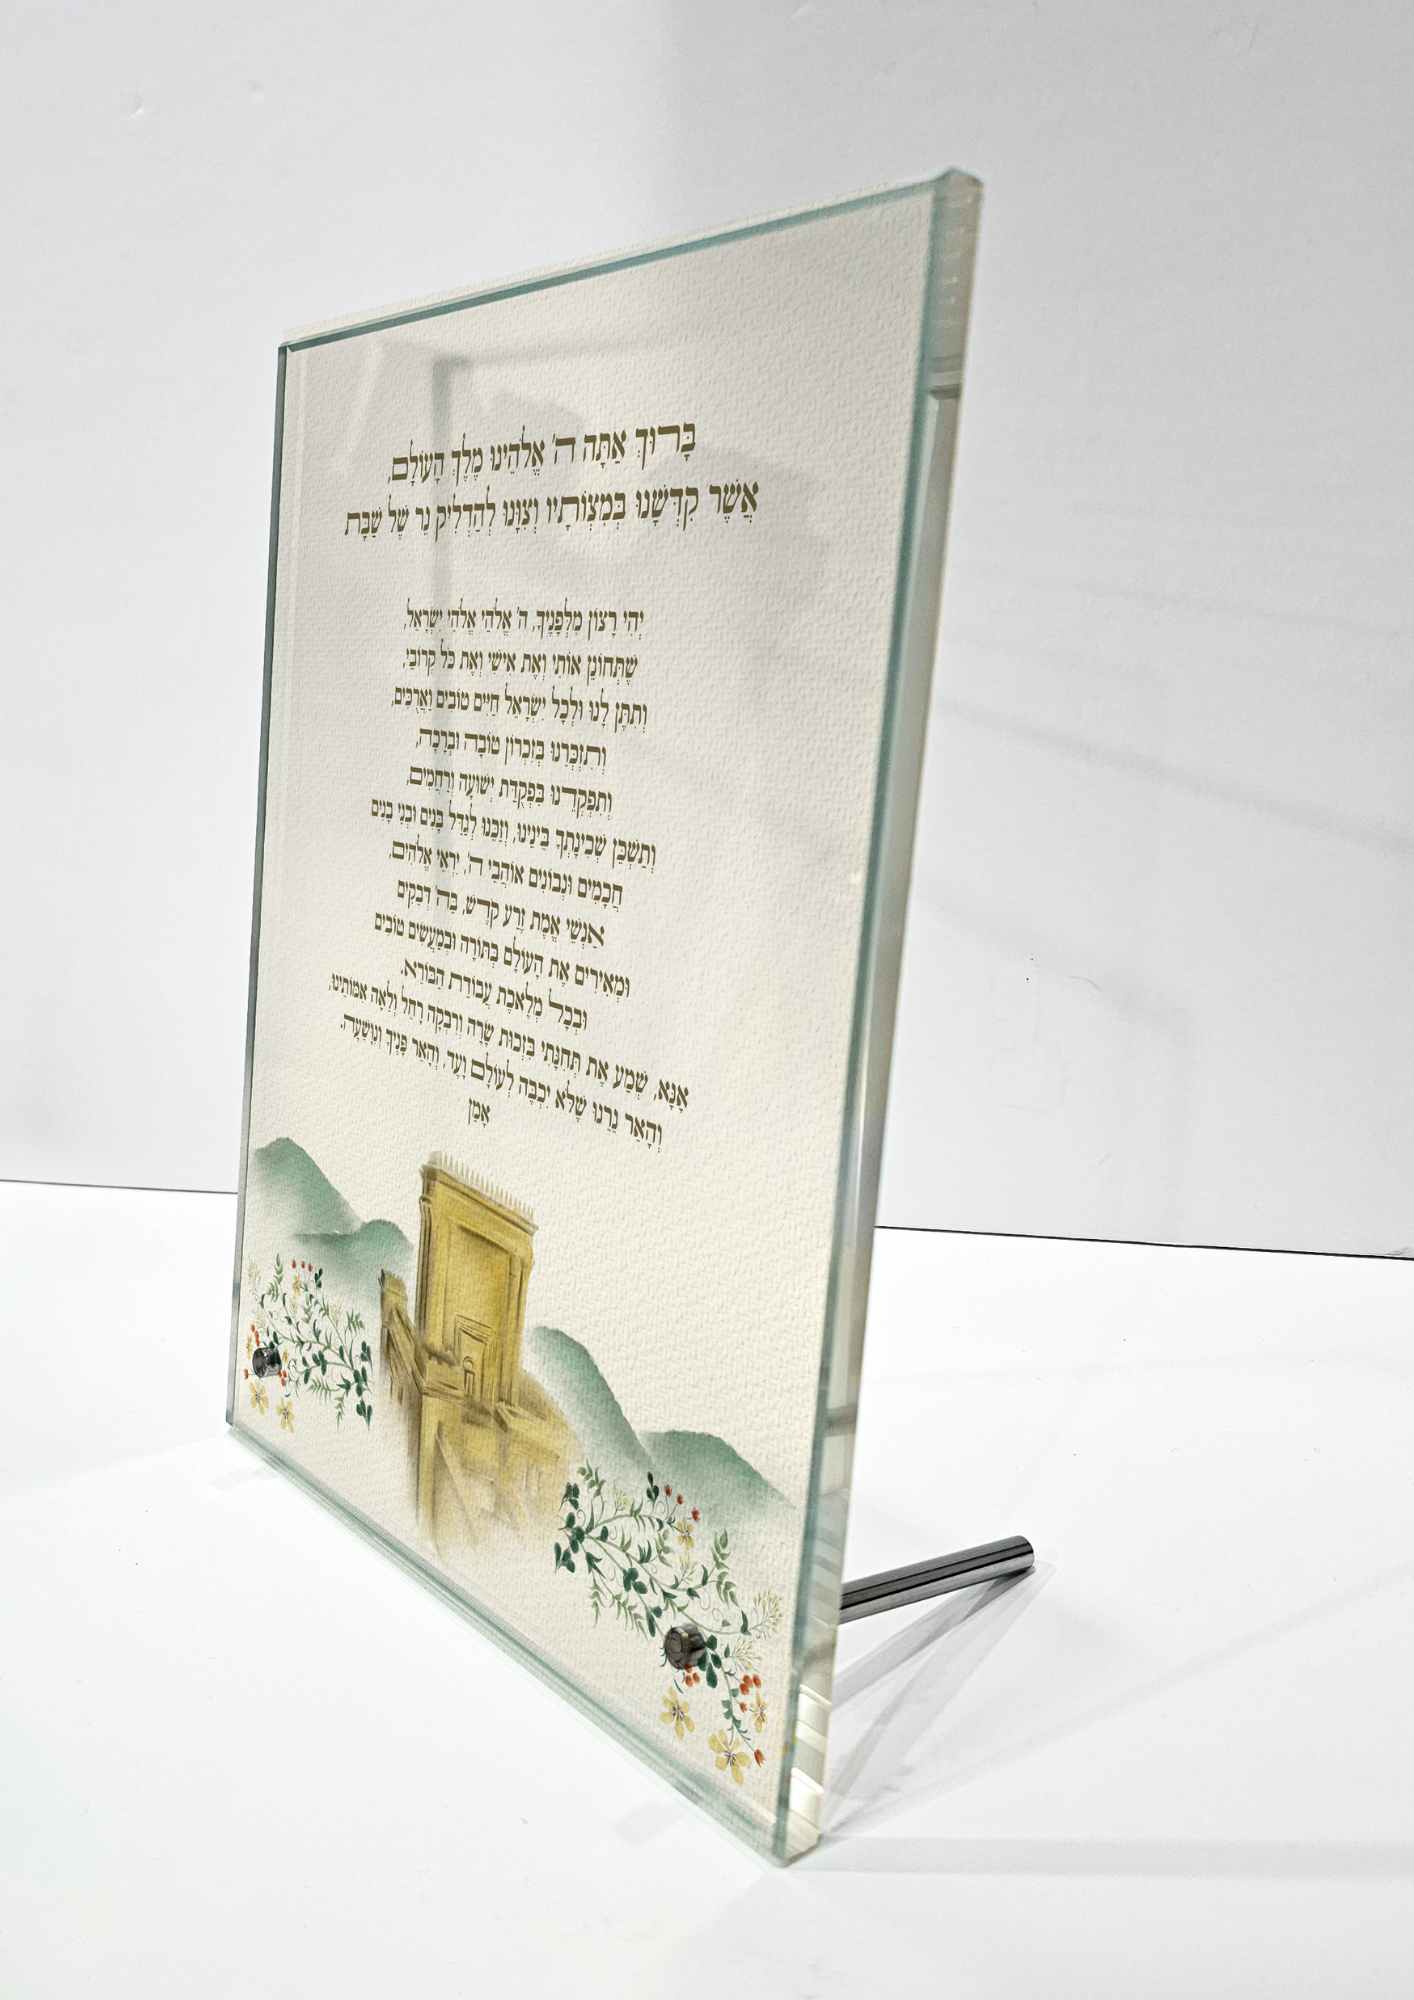 בָּרוּךְ אַתָּה ה' אֱלֹהֵינוּ מֶלֶךְ הָעוֹלָם,
אֲשֶׁר קִדְּשָׁנוּ בְּמִצְוֹתָיו וְצִוָּנוּ לְהַדְלִיק נֵר שֶׁל שַׁבָּת
יְהִי רָצוֹן מִלְּפָנֶיךָ, ה' אֱלֹהַי אֱלֹהֵי יִשְׂרָאֵל,
שֶׁתְּחוֹנֵן אוֹתִי וְאֶת אִישִׁי וְאֶת כָּל קְרוֹבַי,
וְתִתֵּן לָנוּ וּלְכָל יִשְׂרָאֵל חַיִּים טוֹבִים וַאֲרֻכִּים,
וְתִזְכְּרֵנוּ בְּזִכְרוֹן טוֹבָה וּבְרָכָה,
וְתִפְקְדֵנוּ בִּפְקֻדַּת יְשׁוּעָה וְרַחֲמִים,
וְתַשְׁכֵּן שְׁכִינָתְךָ בֵּינֵינוּ, וְזַכֵּנוּ לְגַדֵּל בָּנִים וּבְנֵי בָנִים
חֲכָמִים וּנְבוֹנִים אוֹהֲבֵי ה', יִרְאֵי אֱלֹהִים,
אַנְשֵׁי אֱמֶת זֶרַע קֹדֶשׁ, בַּה' דְּבֵקִים
וּמְאִירִים אֶת הָעוֹלָם בְּתוֹרָה וּבְמַעֲשִׂים טוֹבִים
וּבְכָל מְלֶאכֶת עֲבוֹדַת הַבּוֹרֵא.
אָנָּא, שְׁמַע אֶת תְּחִנָּתִי בִּזְכוּת שָׂרָה וְרִבְקָה רָחֵל וְלֵאָה אִמּוֹתֵינוּ,
וְהָאֵר נֵרֵנוּ שֶׁלֹּא יִכְבֶּה לְעוֹלָם וָעֶד, וְהָאֵר פָּנֶיךָ וְנִוָּשֵׁעָה.
אָמֵן